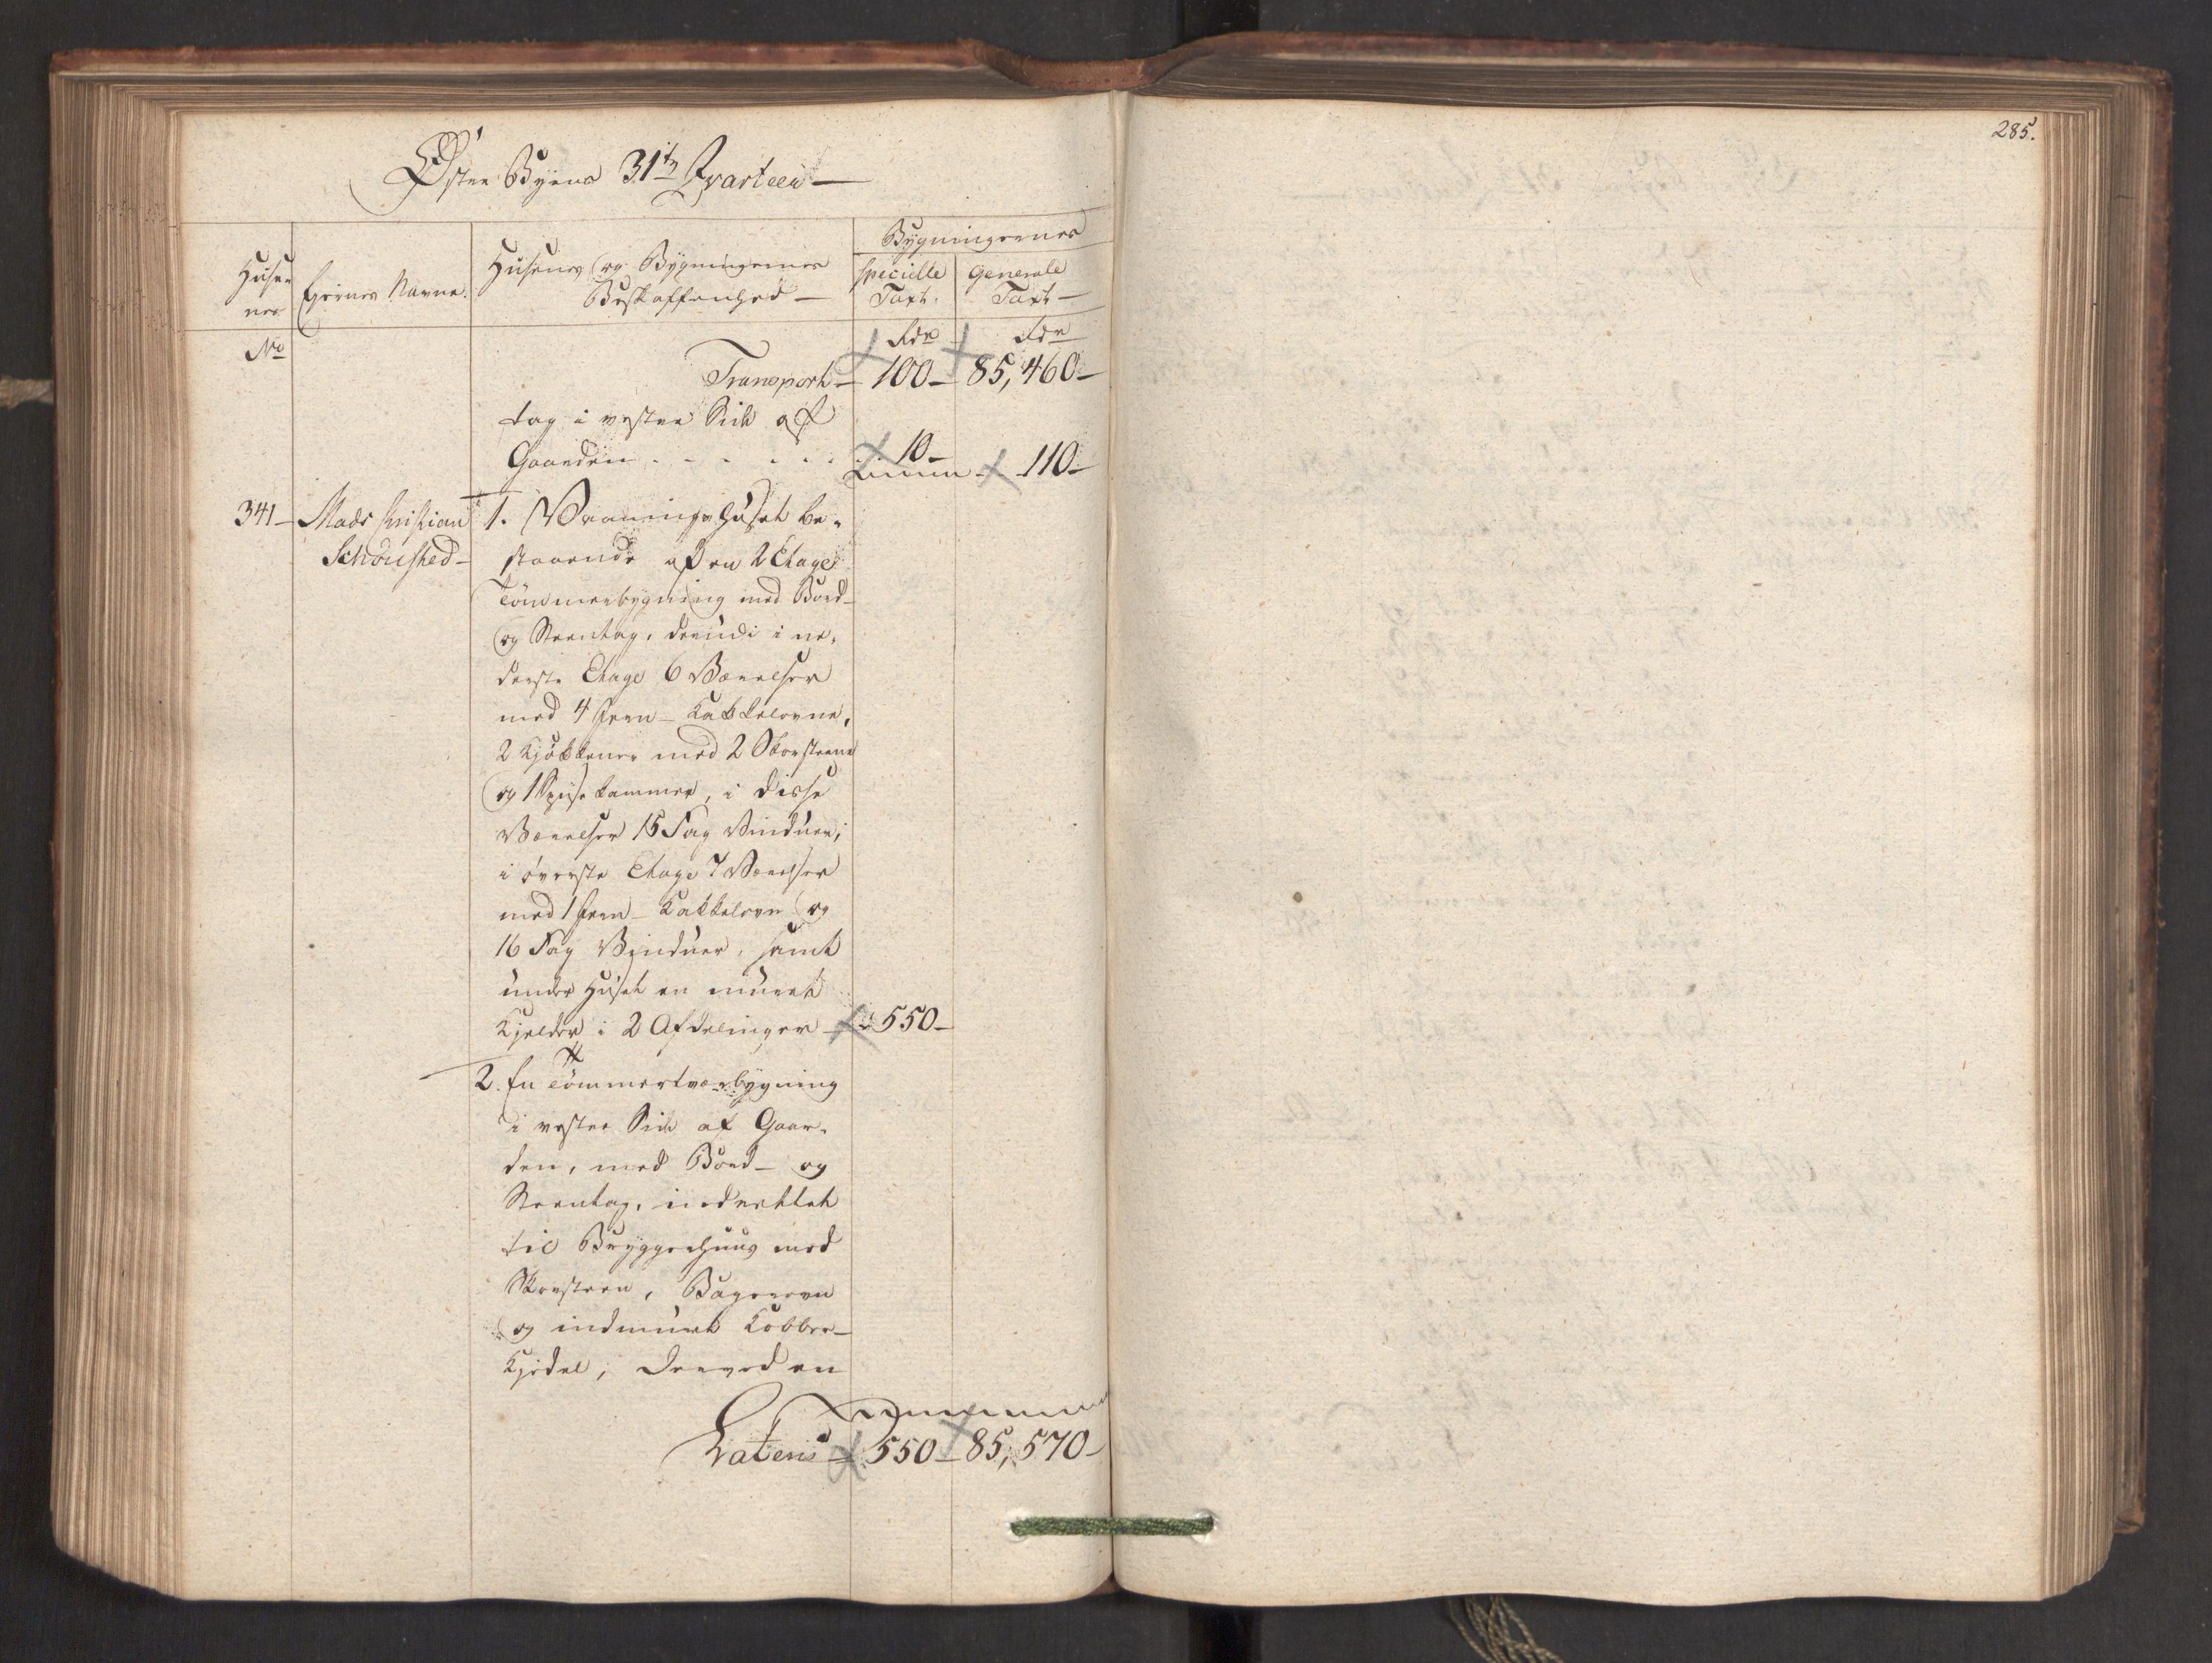 285.
Øster Byens 31te Qvarteer
Bygningernes
Huse=
nes
Eyernes Navne.
Husenes og Bygningernes
Beskaffenhed
specielle
Taxt.
generale
Taxt
No
Rdr
Rdr
Transport 100 85,460
tag i vester Side af
Gaarden . . . . . 10
110
341 Mads Christian
Schönsted
1. Vaaningshuset be=
staaende af en 2 Etage
Tömmerbygning med Bord-
og Steentag, deri i ne=
derste Etage 6 Værelser
med 4 Jern-Kakkelovne,
2 Kjökkener med 2 Skorsteene
og 1 Spiisekammer, i disse
Værelser 15 Fag Vinduer;
i överste Etage 7 Værelser
med 1 Jern-Kakkelovn og
16 Fag Vinduer, samt
under Huset en muret
Kjelder i 2 Afdelinger 550
2. En Tömmertværbygning
i vester Side af Gaar=
den, med Bord- og
Steentag, indrettet
til Bryggerhuus med
Skorsteen, Bagerovn
og indmuret Kobber-
Kjedel, derved en
Lateris 550 85,570